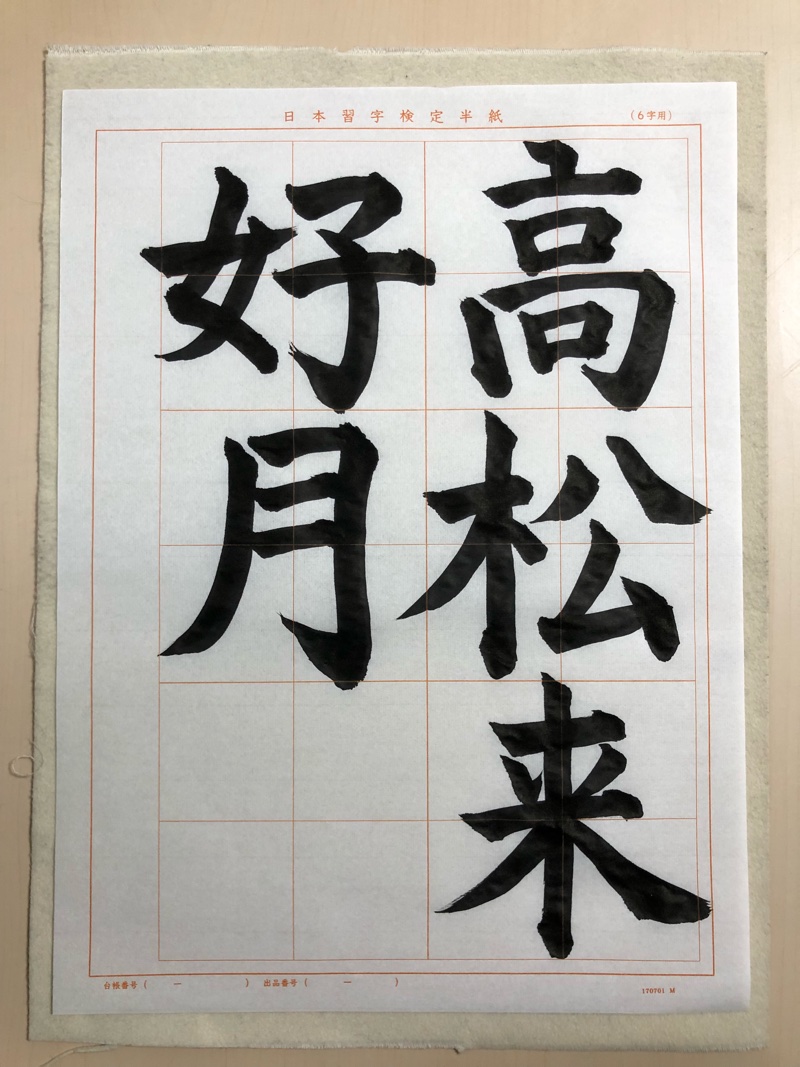 日本習字検定半紙
(6字用)
高松来
好月
台帳番号( ー ) 出品番号( ー )
170701 M